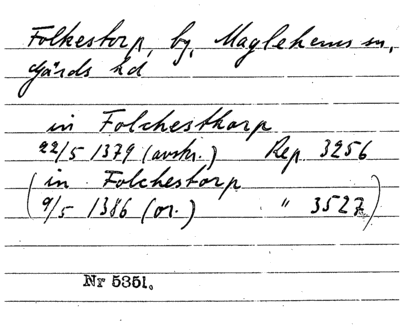 Folkestorp, by, Maglehems sn,
Gärds hd
in Folchesthorp
22/5 1379 (avskr.) Rep 3256
(in Folchestorp
9/5 1386 (or.) " 3527)
Nr 5351.